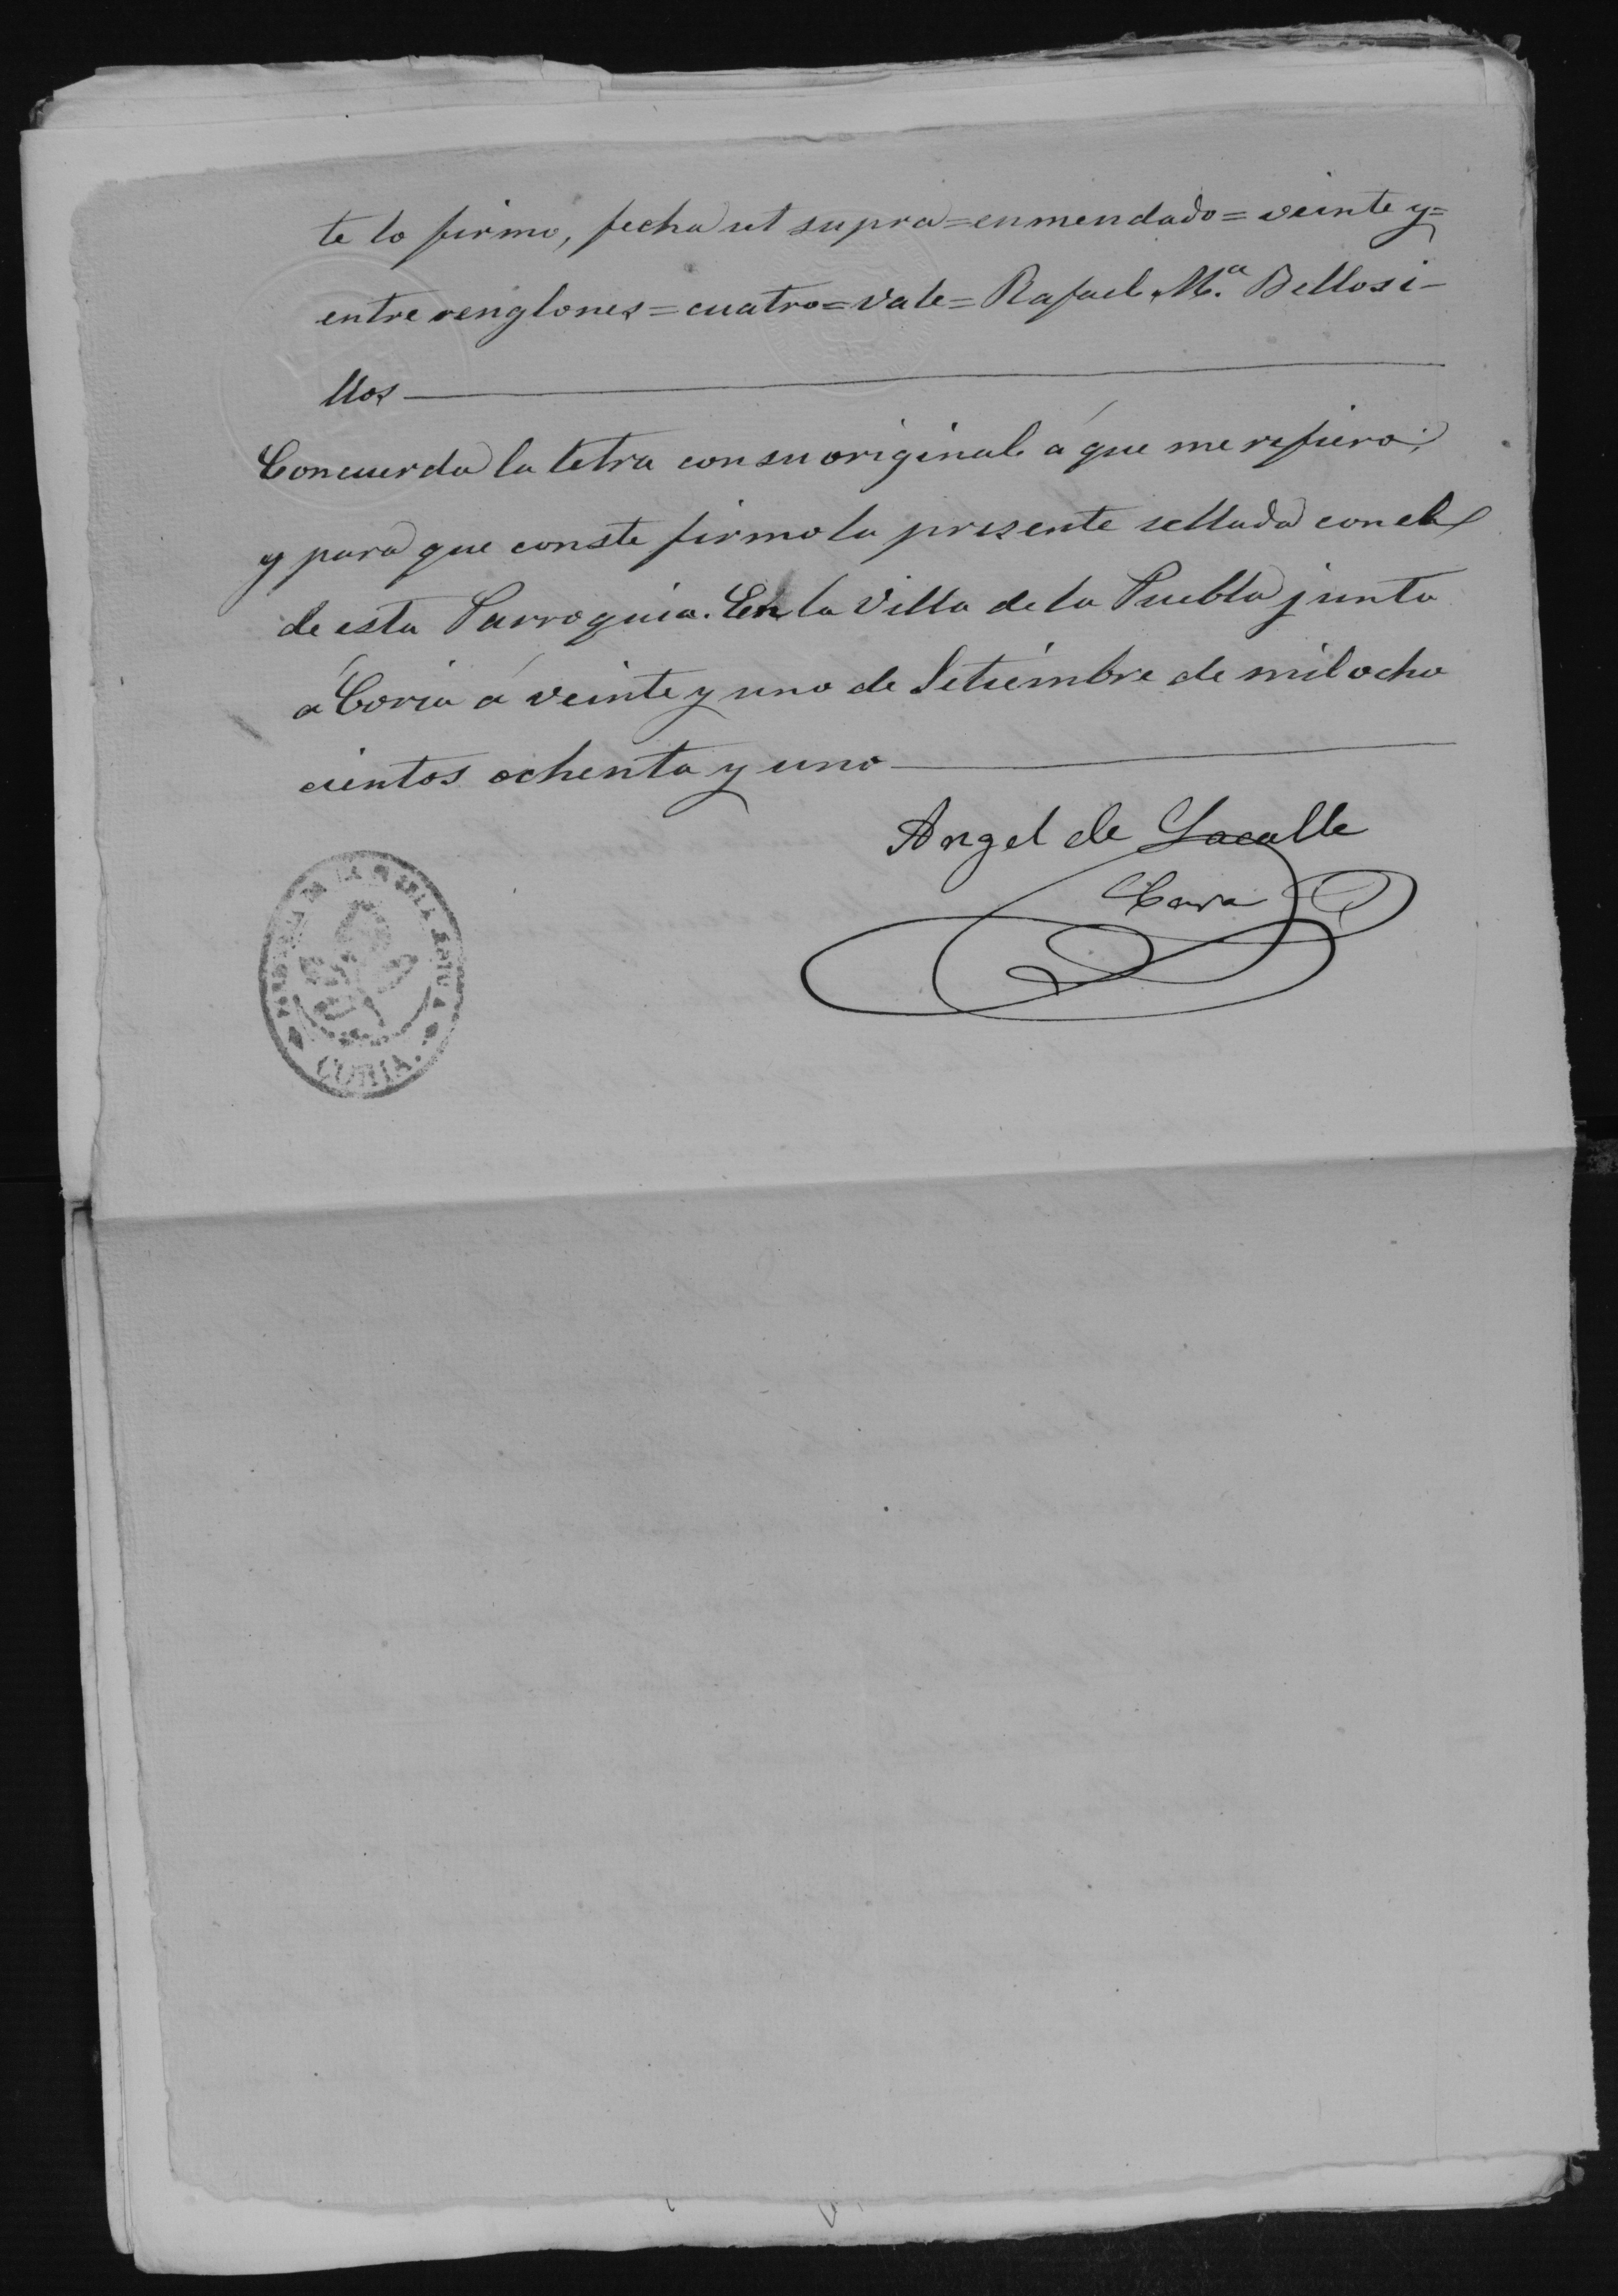 te lo firmo, fecha ut supra=enmendado=veinte y=
entre renglones=cuatro=vale=Rafael M.ª Bellosi-
llos
Concuerda la letra con su original á que me refiero;
y para que conste firmo la presente sellada con el
de esta Parroquia. En la Villa de la Puebla junto
á Coria á veinte y uno de Setiembre de mil ocho
cientos ochenta y uno
Angel de Lacalle
Cura
DE LA PUEBLA JUNTO A
CORIA.